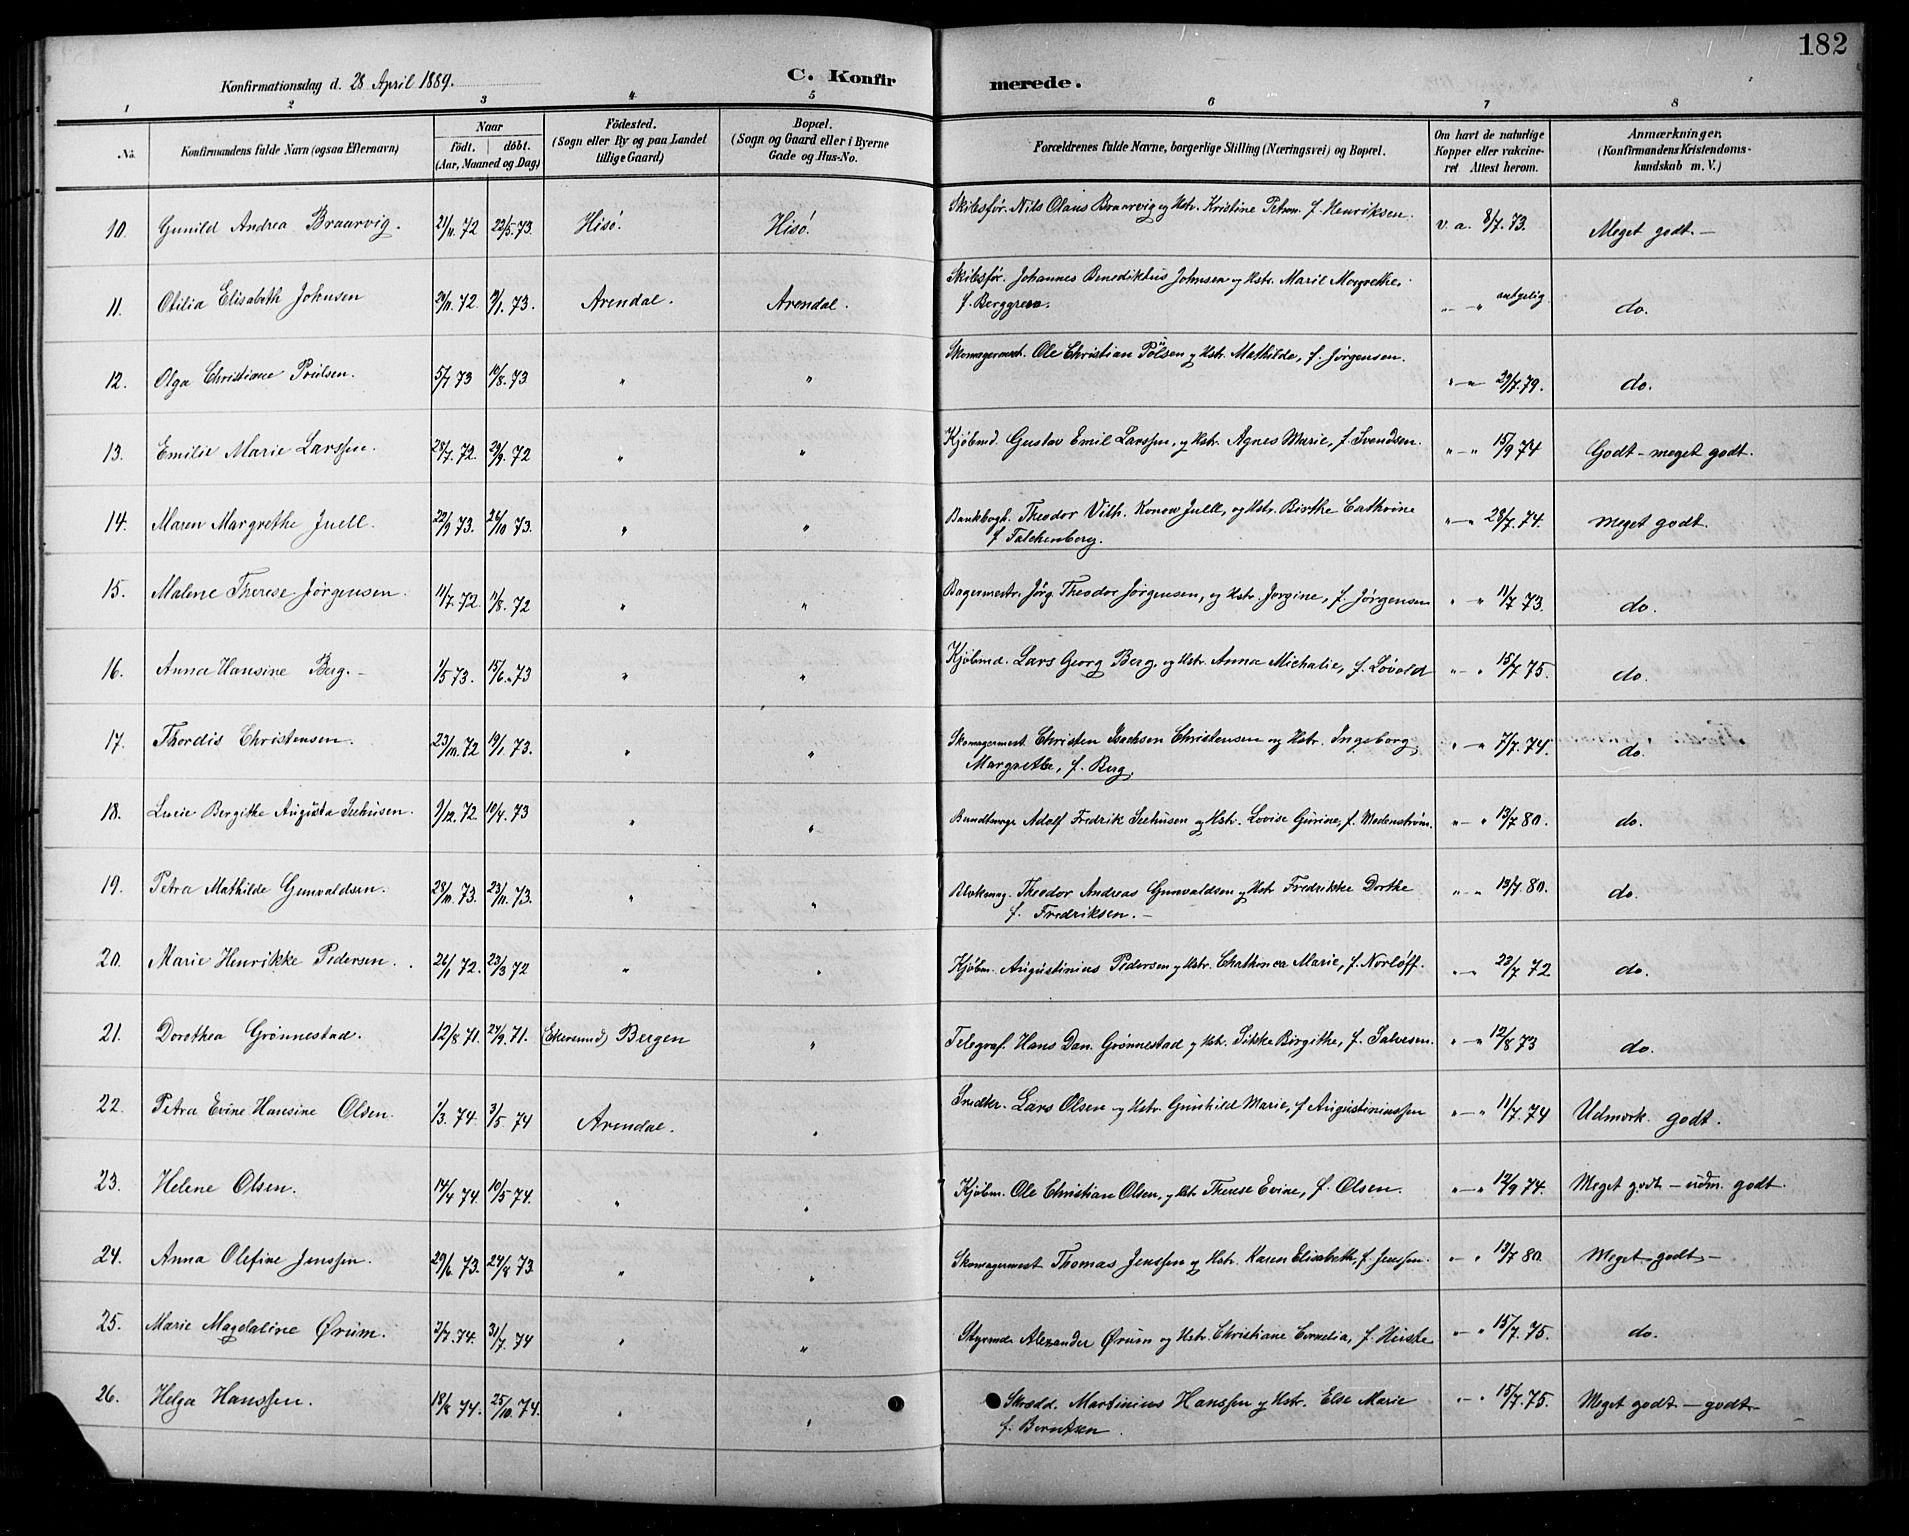 182
Konfirmationsdag d. 28 April 1889.
C. Konfirmerede.
1 2 3 4 5 6 7 8
No.
Konfirmandens fulde Navn (ogsaa Efternavn)
Naar
født. døbt.
(Aar, Maaned og Dag)
Födested.
(Sogn eller By og paa Landet
tillige Gaard)
Bopæl.
(Sogn og Gaard eller i Byerne
Gade og Hus-No.
Forældrenes fulde Navne, borgerlige Stilling (Næringsvei) og Bopæl.
Om havt de naturlige
Kopper eller vakcine-
ret Attest herom.
Anmærkninger.
(Konfirmandens Kristendoms-
kundskab m. V.)
10. Gunild Andrea Braarvig. 21/11 72 22/5. 73. Hisö. Hisö. Skibsfør. Nils Olaus Braarvig og Hstr. Kristine Petron. f. Henriksen. v. a. 8/7. 73. Meget godt. —
11. Otilia Elisabeth Johnsen 72 73. Arendal. Arendal. Skibsfør. Johannes Benediktus Johnsen og Hstr. Marie Margrethe,
f. Berggreen. " — " do.
12. Olga Christiane 5/7 73 19/8. 73 " " Skomagermest. Ole Christian Pölsen og Hstr. Mathilde, f. Jørgensen. " — " 29/7. 79. do.
13. Emilie Marie Larssen. 28/7. 72. 29/9. 72 " " Kjøbmd. Gustav Emil Larssen, og Hstr. Agnes Marie, f. Svendsen. " — " 15/9 74 Godt — meget godt.
14. Maren Margrethe Juell. 22/9 73. 26/10 73. " " Bankbogh. Theodor Vilh. Konow Juell, og Hstr. Birthe Cathrine
f Falchenberg. " — " 28/7. 74. meget godt.
15. Malene Therese Jørgensen. 11/7. 72. 11/8. 72 " " Bagermestr. Jörg. Theodor Jørgensen, og Hstr. Jorgine, f. Jørgensen " " 11/7 73. do.
16. Anna Hansine Berg. — 1/5 73. 15/6. 73 " " Kjøbmd. Lars Georg Berg, og Hstr. Anna Michalie, f. Løvold " — " 15/7 75. do.
17. Thordis Christensen. 23/11. 72 19/1. 73. " " Skomagermest. Christen Christensen og Hstr. Ingeborg
Margrethe, f. Berg. " " 7/7. 74. do.
18. Lucie Bergithe Augusta Seehusen. 9/12. 72. 10/4. 73 " " Adolf Fredrik Seehusen og Hstr. Lovise Gurine, f. " — " 13/7 80. do.
19. Petra Mathilde Gunvaldsen. 73. 23/11. 73. " " Theodor Andreas Gunvaldsen og Hstr Fredrikke Dorthe
f. Fredriksen. — " " 13/7. 80. do.
20. Marie Henrikke Pedersen. 72. 23/3 72 " " Kjøbm. Augustinius Pedersen og Hstr. Marie, f. Norløff. " — " 23/7 72 do.
21. Dorothea Grønnestad. 12/8 71. 24/9. 71. (Ekersund) Bergen " Telegraf. Hans Dan. Grønnestad og Hstr. Sitske Birgithe, f. Salvesen. " — " 12/8 73 do.
22. Petra Evine Hansine Olsen. 1/3. 74. 3/5 74 Arendal. " Lars Olsen og Hstr. Gunhild Marie, f Augustiniussen " — " 11/7. 74 Udmærk. godt.
23. Helene Olsen. 14/4 74. 10/5 74. " " Kjøbm. Ole Christian Olsen, og Hstr Therese Evine, f. Olsen. " — " 12/9 74. Meget godt — udm. godt.
24. Anna Olefine Jenssen. 29/6. 73. 24/8 73. " " Skomagermest Thomas Jenssen og Hstr. Karen Elisabeth, f. Jenssen. " — " 13/7 80. Meget godt —
25. Marie Magdaline Ørum. 2/7. 74. 31/7. 74 " " Styrmd. Alexander Ørum og Hstr. Christiane Cornelia, f. " — " 15/7. 75. do.
26. Helga Hanssen. 18/8 74. 25/10. 74. " " Skrædd. Martinius Hanssen og Hstr. Else Marie
f. Berntsen. " — " 15/7. 75. Meget godt — godt —